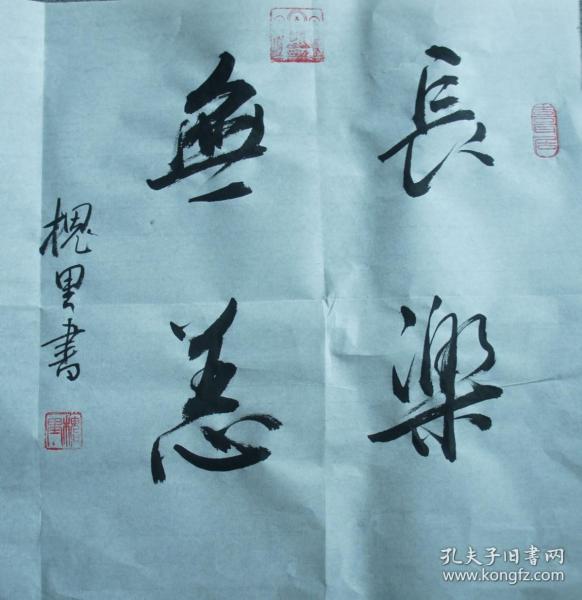 長樂
無恙
槐里書
孔夫子旧书网
www.kongfz.com